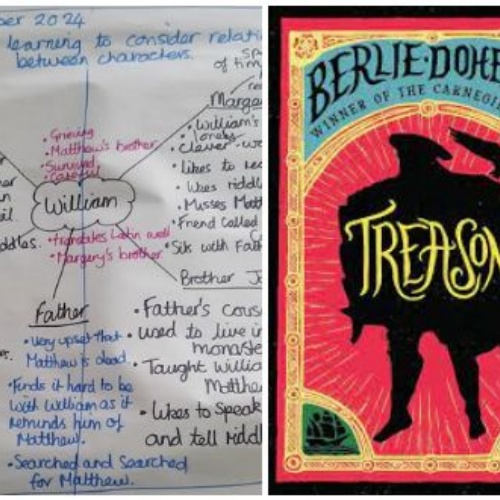 ber 2024
learning to consider relati
between characters.
of tim
Marge
• William's
• Clever
• Likes to re
• Likes riddl
• Misses Matt
• Friend called
• Sits with Fath
• Grieving
• Matthew's brother
• Survived
• Careful
William
• Translates Latin well
• Margery's brother
ddles.
Father
• Very upset that
Matthew is dead
• Finds it hard to be
with William as it
reminds him of
Matthew.
• Searched and Searched
for Matthew.
Brother J
• Father's cous
• used to live i
monaste
• Taught Willia
Matthe
• Likes to Speak
and tell riddl
BERLIE·DOHE
WINNER OF THE CARNEG
TREASON